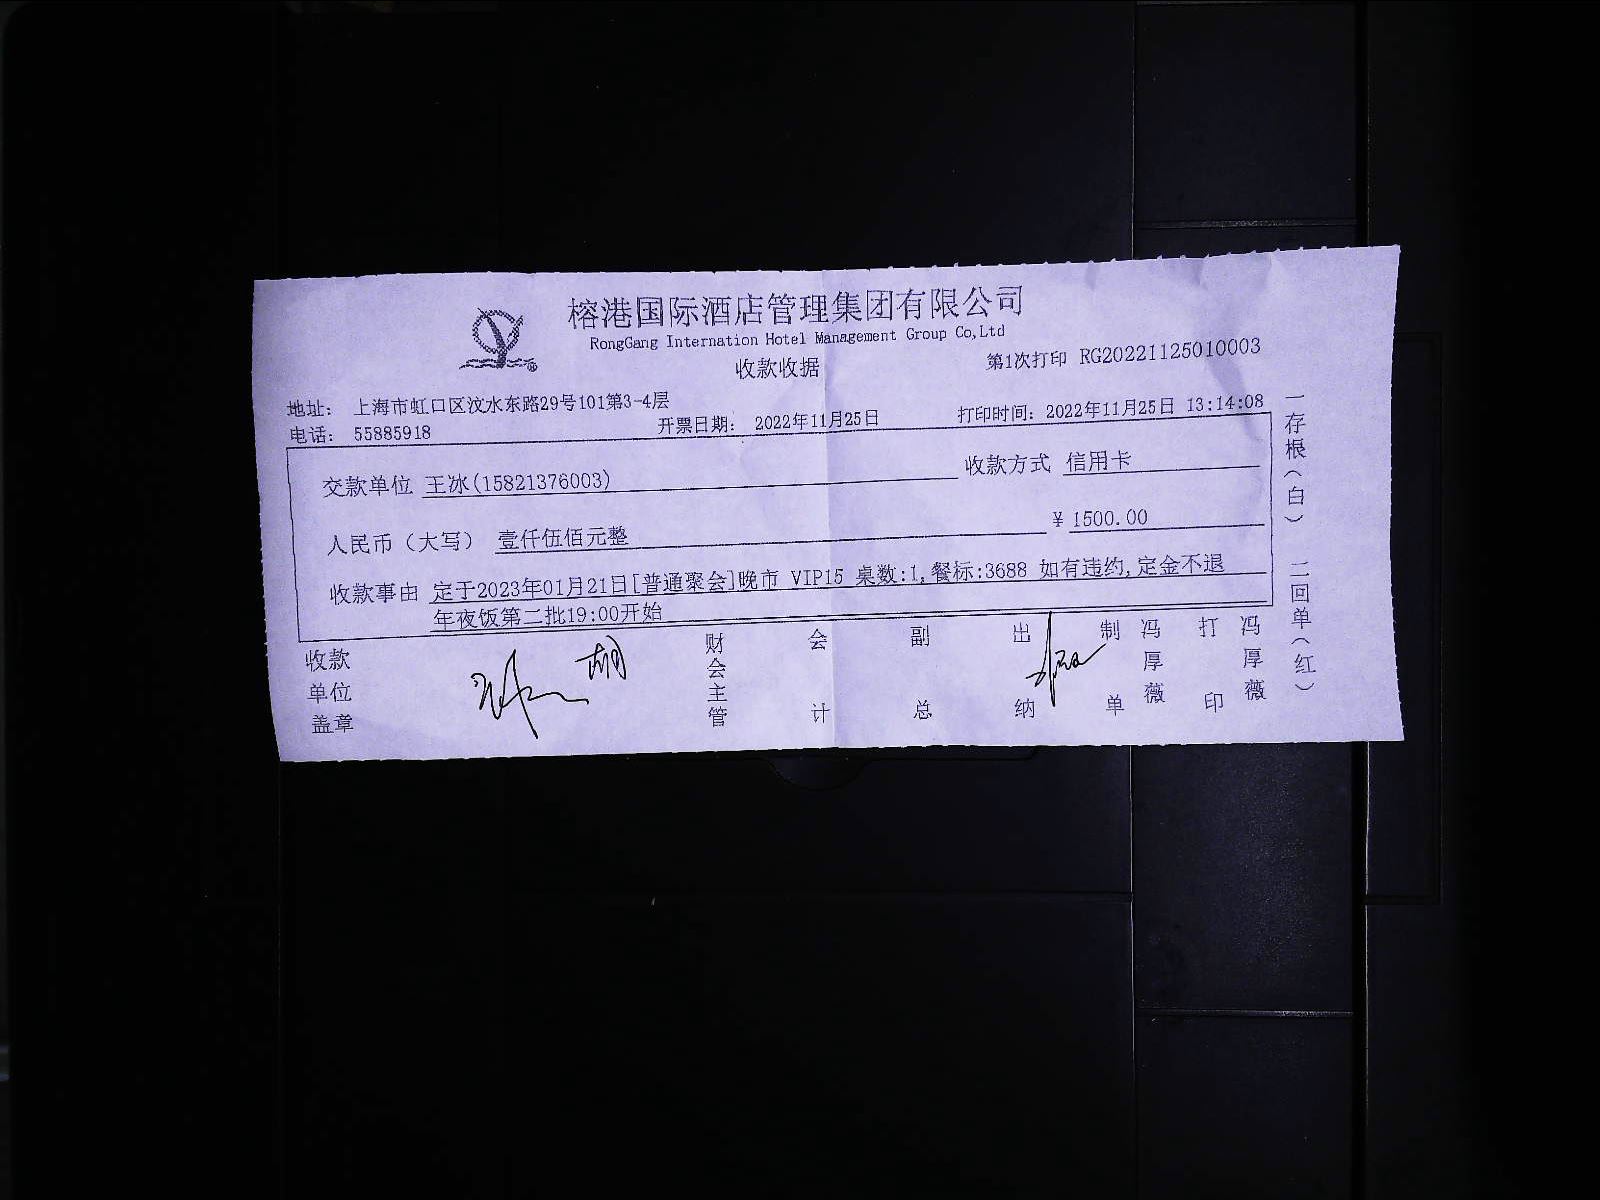 榕港国际酒店管理集团有限公司
RongGang Internation Hotel Management Group Co,Ltd
收款收据
第1次打印 RG20221125010003
地址: 上海市虹口区汶水东路29号101第3-4层
电话: 55885918 开票日期: 2022年11月25日 打印时间: 2022年11月25日 13:14:08
交款单位 王冰(15821376003) 收款方式 信用卡
人民币(大写) 壹仟伍佰元整 ¥ 1500.00
收款事由 定于2023年01月21日[普通聚会]晚市 VIP15 桌数:1,餐标:3688 如有违约,定金不退
年夜饭第二批19:00开始
收款单位盖章 财会主管 会计 副总 出纳 制单 冯厚薇 打印 冯厚薇
一存根(白) 二回单(红)